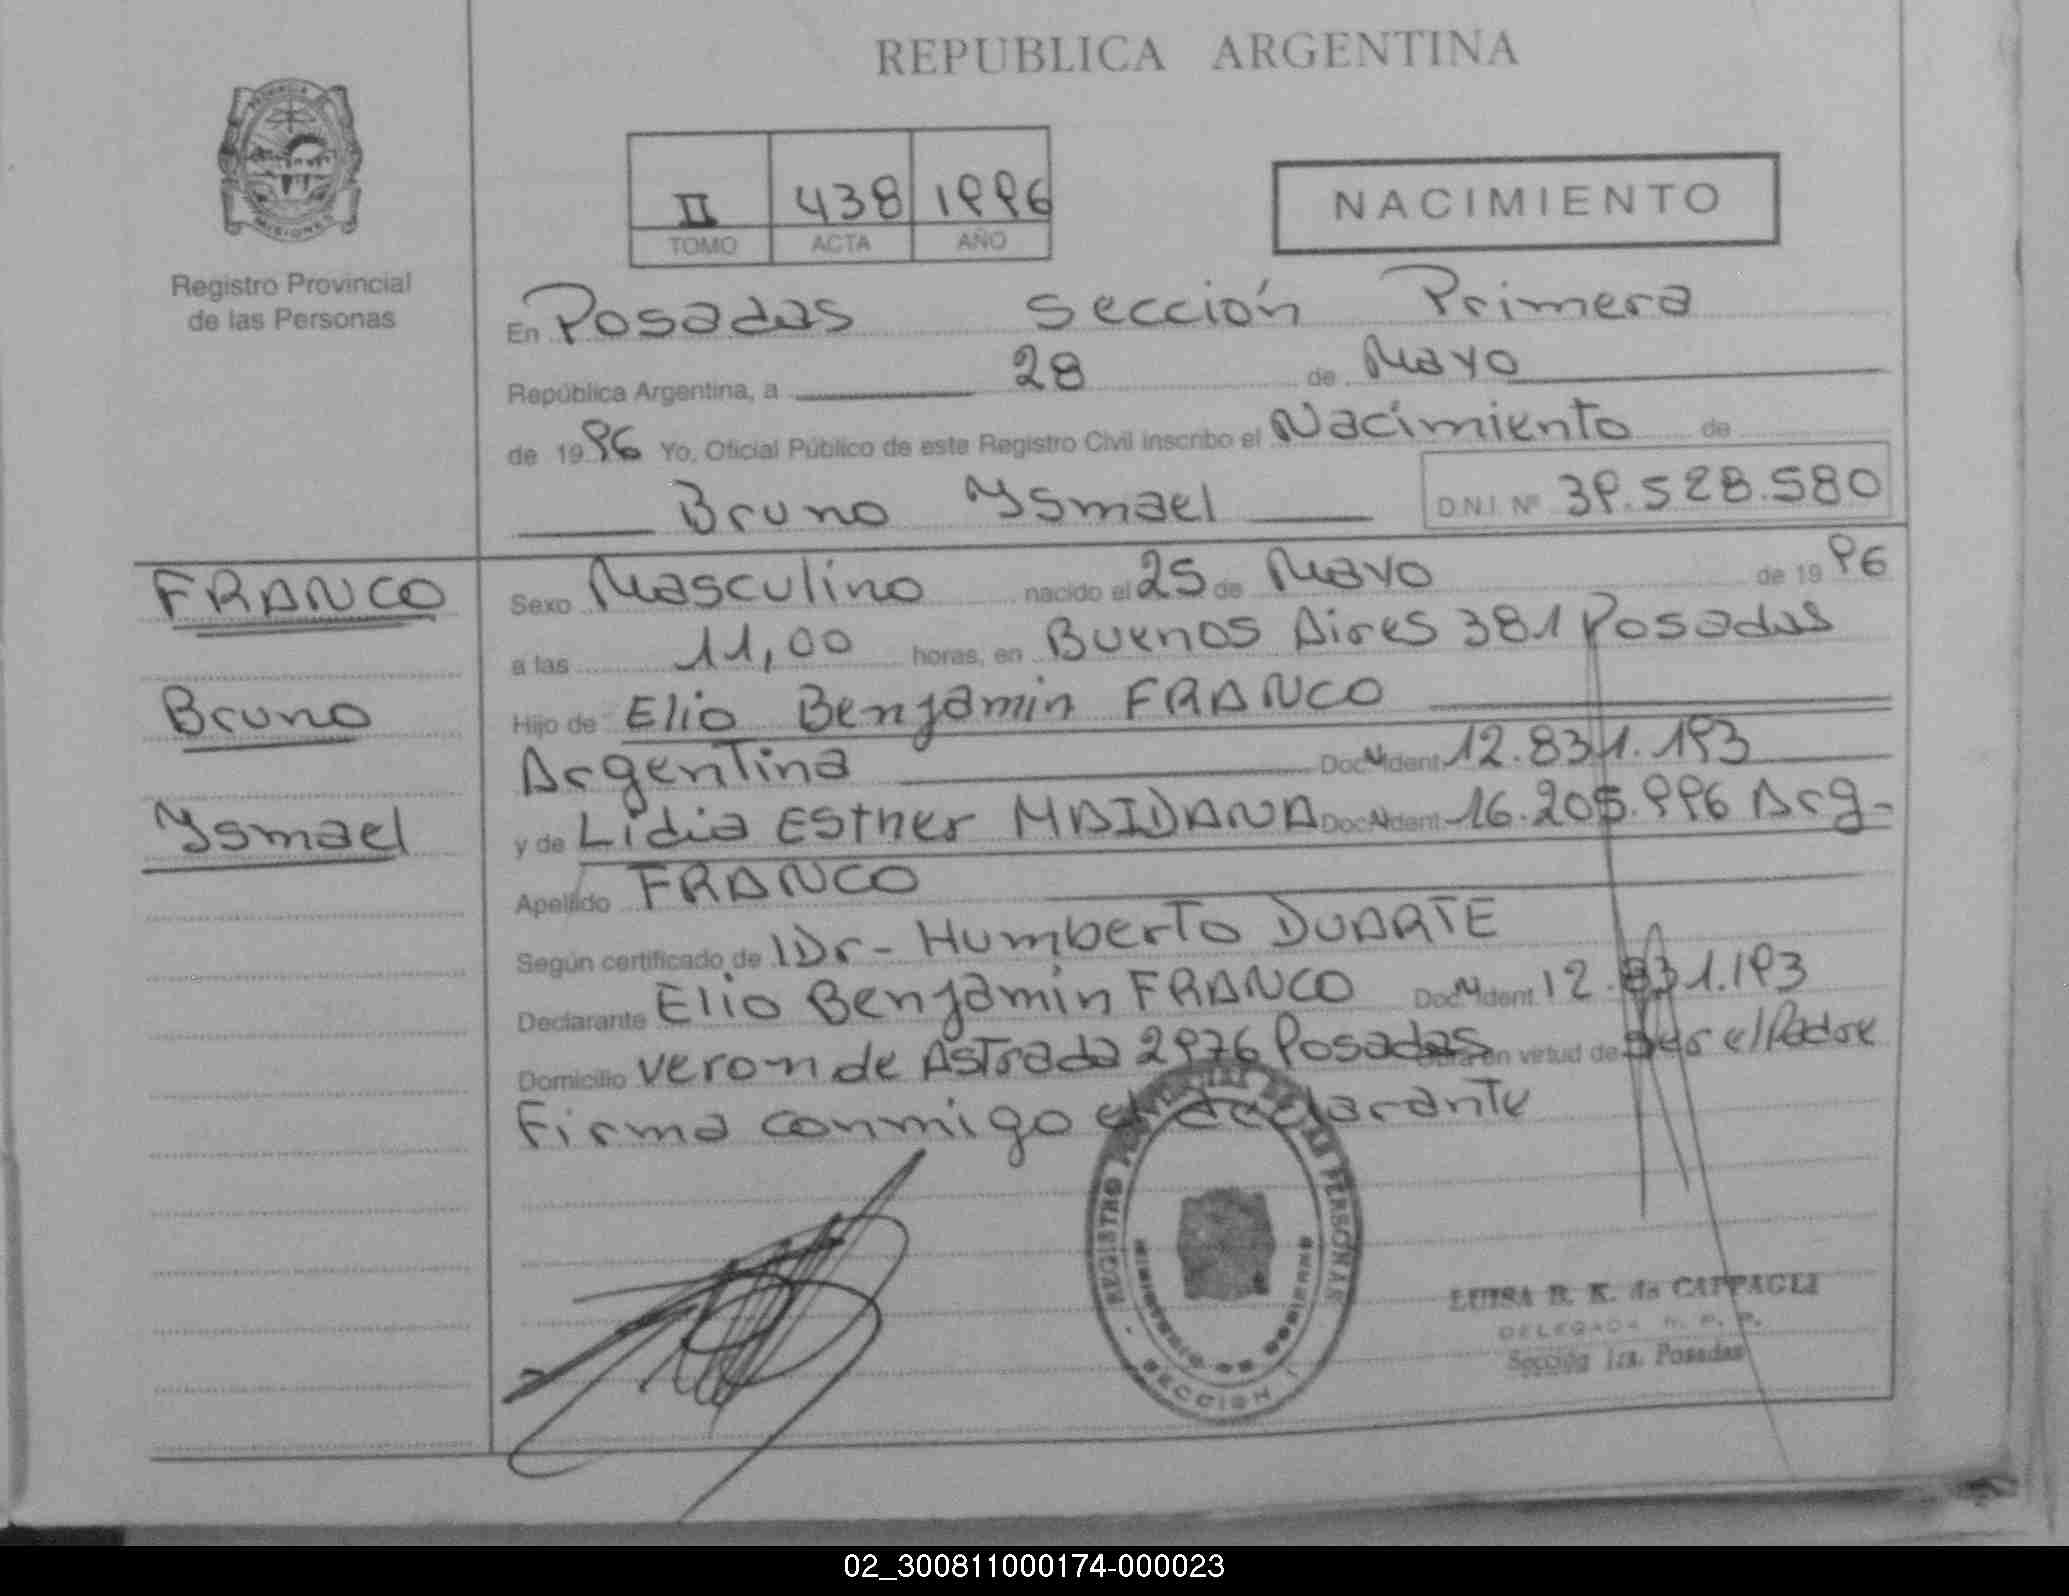 REPUBLICA ARGENTINA
PROVINCIA DE
MISIONES
Registro Provincial
de las Personas
II 438 1996
TOMO ACTA AÑO
NACIMIENTO
En Posadas Sección Primera
República Argentina, a 28 de Mayo
de 1996 Yo, Oficial Público de este Registro Civil inscribo el Nacimiento de
Bruno Ysmael D.N.I. Nº 39.528.580
FRANCO
Bruno
Ysmael
Sexo Masculino nacido el 25 de Mayo de 1996
a las 11,00 horas, en Buenos Aires 381 Posadas
Hijo de Elio Benjamin FRANCO
Argentina Doc. Ident. 12.831.193
y de Lidia Esther MAIDANA Doc. Ident. 16.205.996 Arg.
Apellido FRANCO
Según certificado de Dr- Humberto DUARTE
Declarante Elio Benjamin FRANCO Doc. Ident. 12.831.193
Domicilio Veron de Astrada 2976 Posadas Obra en virtud de ser el Padre
Firma conmigo el declarante
REGISTRO PROVINCIAL DE LAS PERSONAS
MINISTERIO DE GOBIERNO
SECCION 1
LUISA B. K. de CAPPAGLI
DELEGADA R. P. P.
Sección 1ra. Posadas
02_300811000174-000023